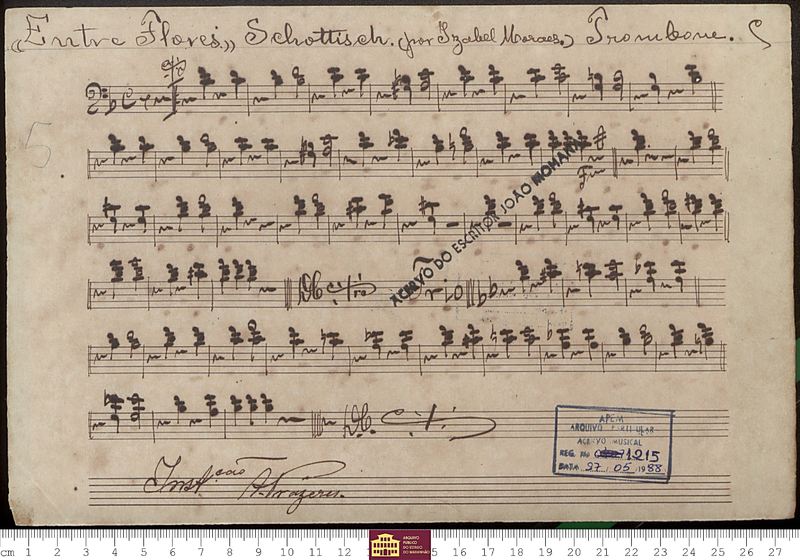 "Entre Flores" Schottisch. (por Izabel Moraes.) Trombone.
5
Fim
ACERVO DO ESCRITOR JOÃO MOHANA
DC
DC.
APEM
ARQUIVO
ACERVO MUSICAL
REG. No 1215
DATA 27 / 05 / 1988
Inst.cão
Prazeres.
cm 1 2 3 4 5 6 7 8 9 10 11 12 5 16 17 18 19 20 21 22 23 24 25 26 27
ARQUIVO
PÚBLICO
DO ESTADO
DO MARANHÃO